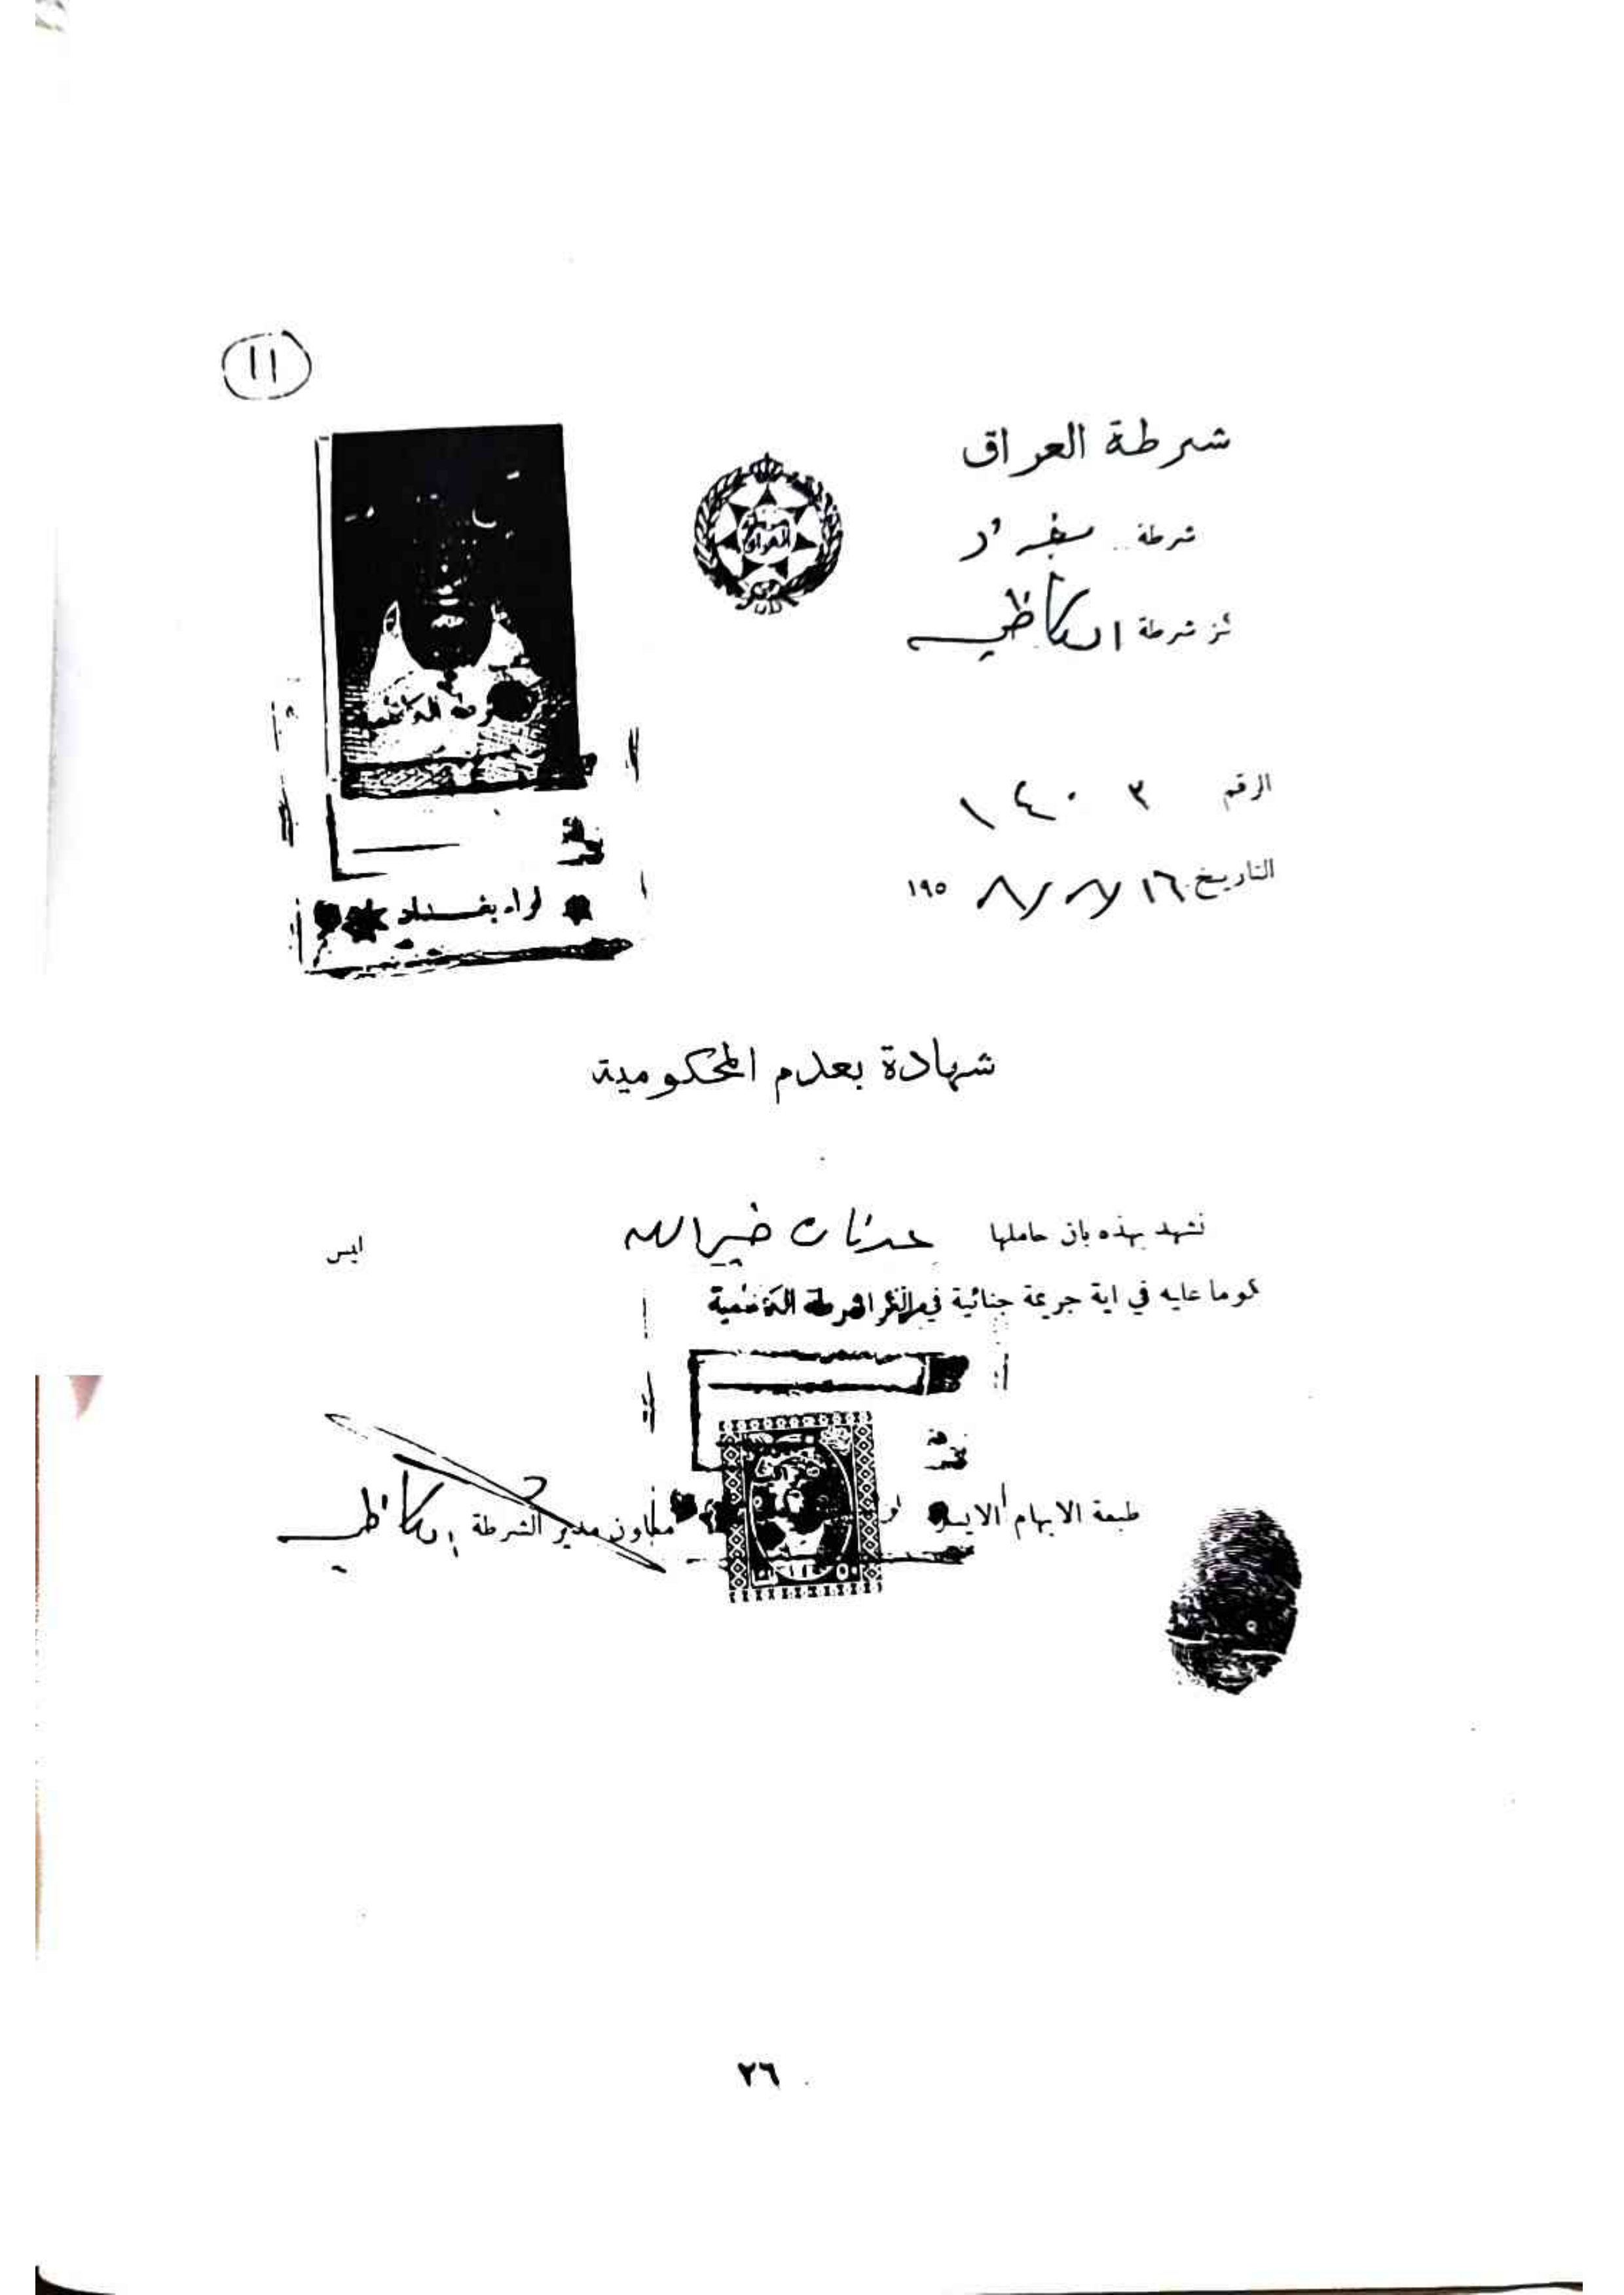 ١١
شرطة العراق
العراق
شرطة بغداد
كز شرطة الكاظمية
الرقم ١٤٠٣
التاريخ ١٦/٧/١٩٥٨
لواء بغداد
شهادة بعدم المحكومية
نشهد بهذه بان حاملها عدنان خيرالله ليس
كوما عليه في اية جريمة جنائية في مركز شرطة الكاظمية
طبعة الابهام الايسر
معاون مدير الشرطة الكاظمية
٢٦